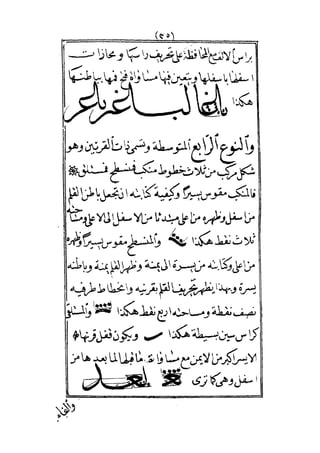 (٣٥)
براس الالف مع المحافظة على تحريف راسها ومحاذات
اسفلها باسفلها ويتعين فيها مساواة فخ فمها بباطنها
هكذا
والنوع الرابع المتوسطة وتسمى ذات القرنين وهو
شكل مركب من ثلاث خطوط منكب فمنسطح فمستلق
فالمنكب مقوس يسيرا وكيفية كتابته ان تجعل باطن القلم
من اسفل وظهره من اعلى مبتدئا من الاسفل الى الاعلى ومساحته
ثلاث نقط هكذا والمنسطح مقوس يسيرا وظهره
من اعلى وكتابته من يسرة الى يمنة وظهر القلم يمنة وباطنه
يسرة وبهذا يظهر تحريف القلم بقرنيه وانحطاط طرفيه
نصف نقطة ومساحته اربع نقط هكذا والمستلق
كراس سين بسيطة هكذا ويكون فعل قرنها
الايسر اكبر من الايمن مع مساواة ما قبلها لما بعدها من
اسفل وهي كما ترى بعد
والفاء